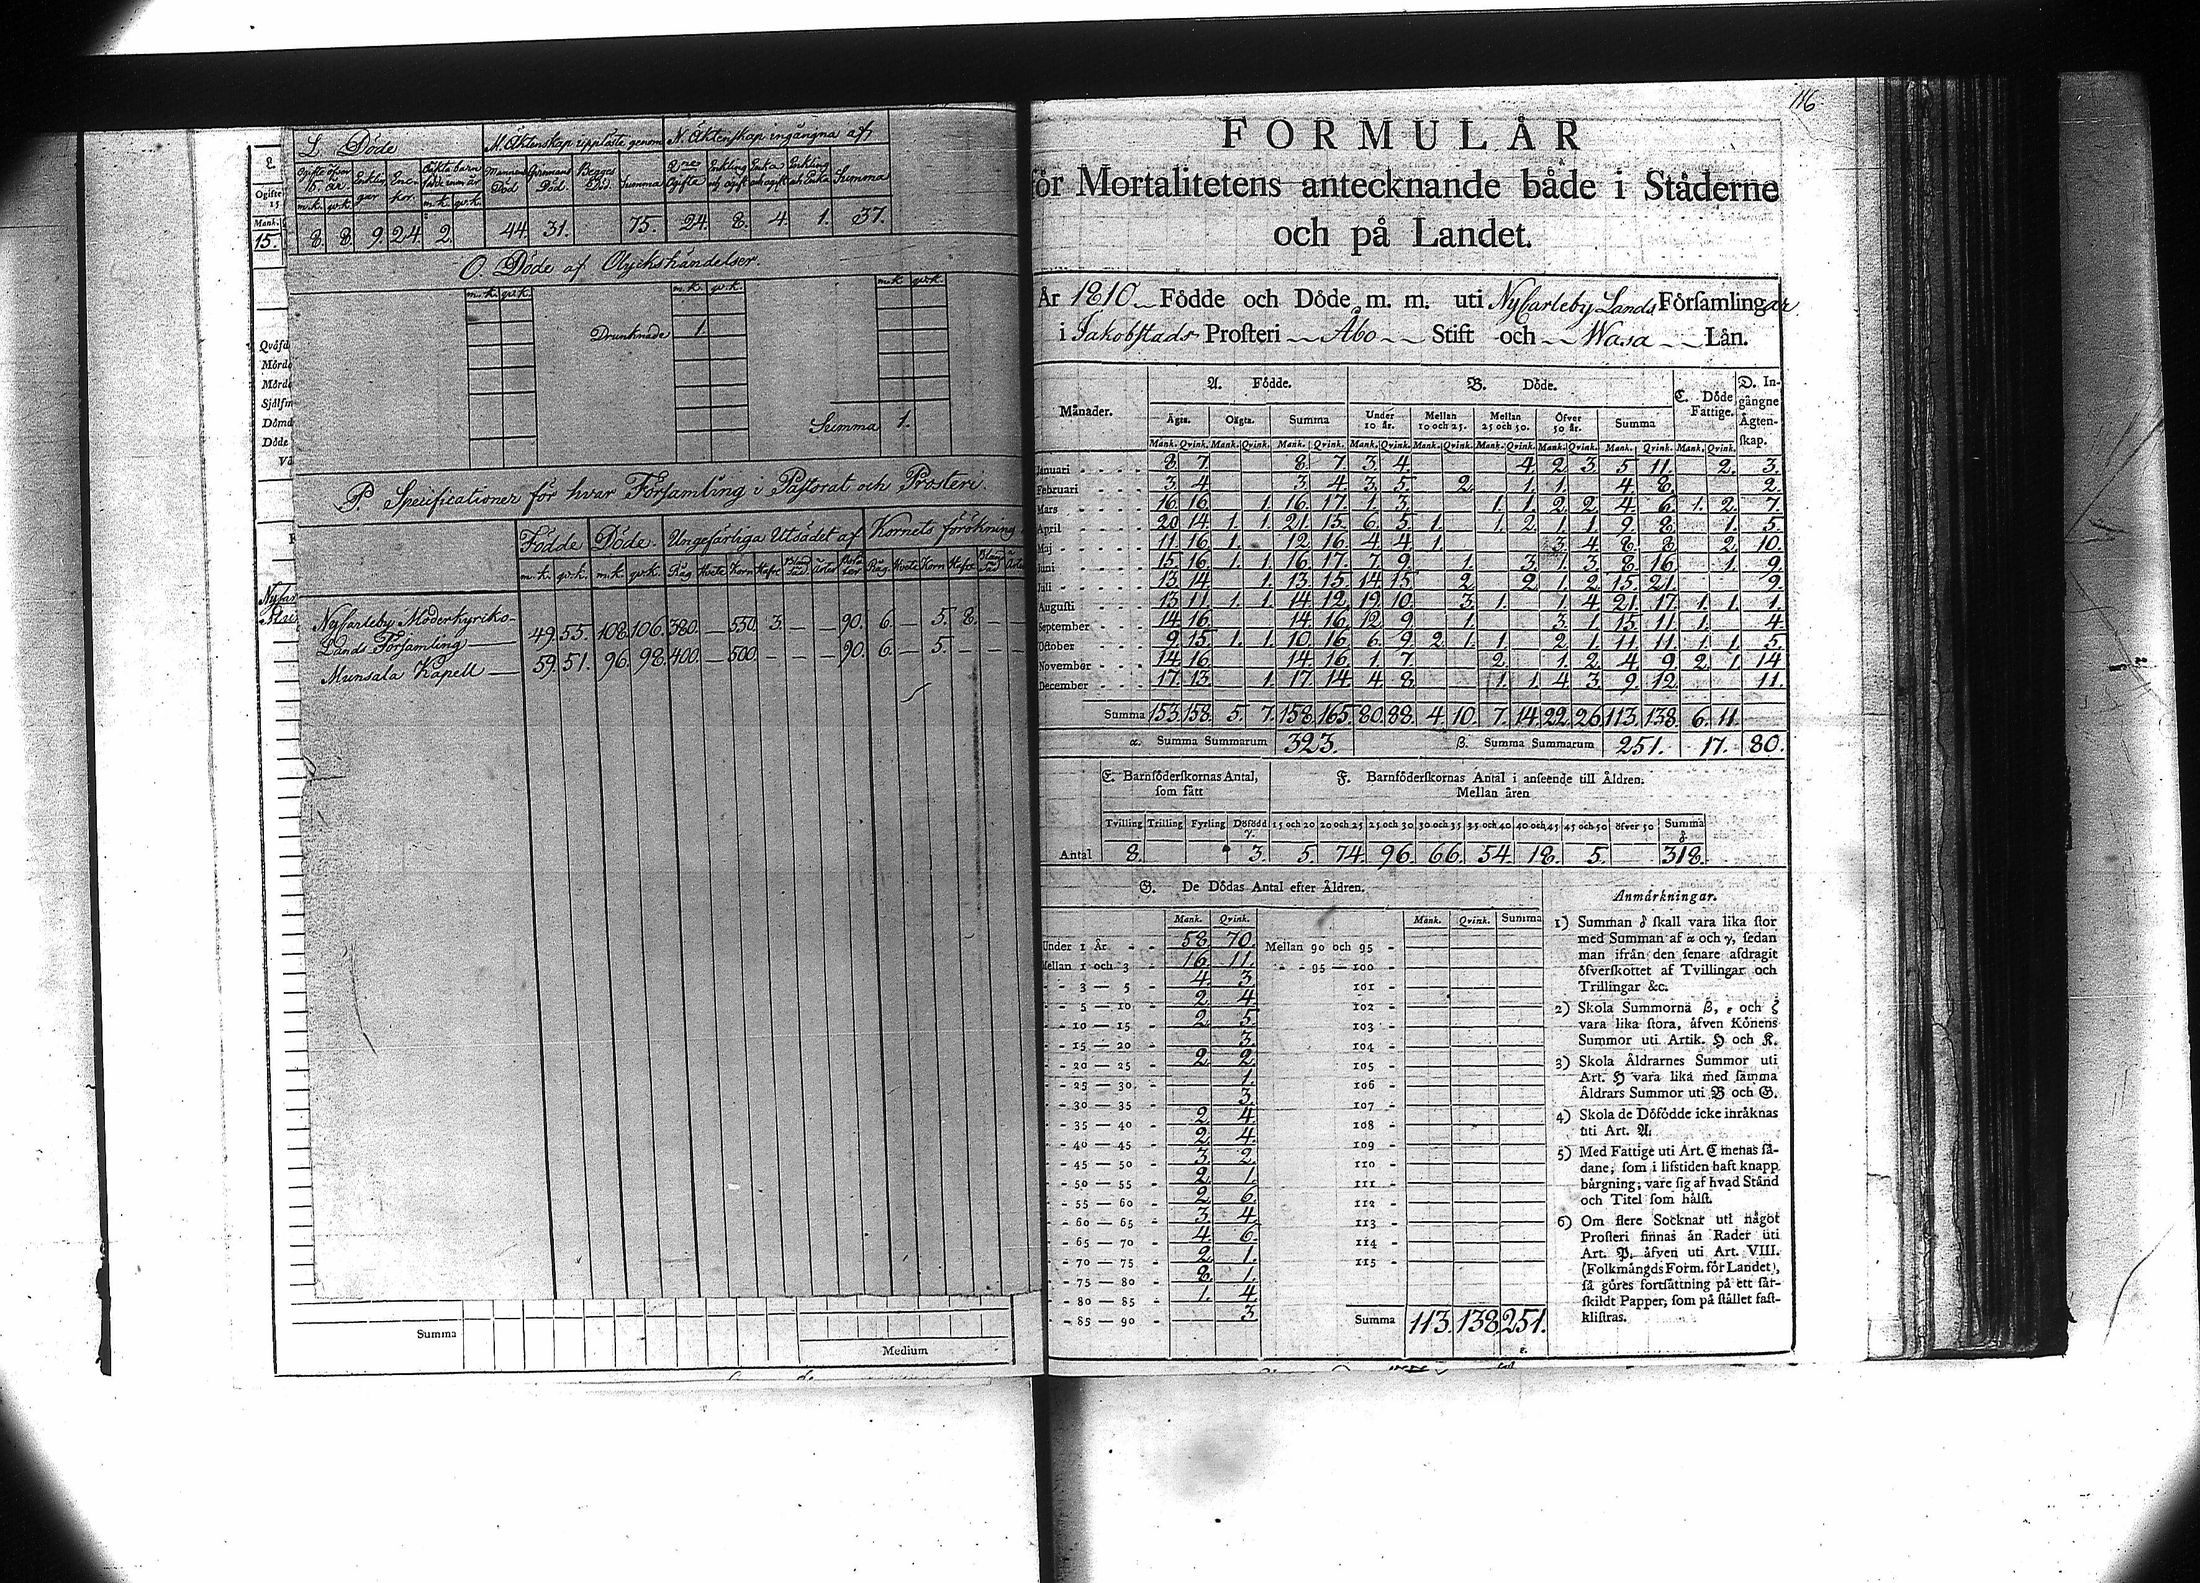 L. Döde
M. Äktenskap upplöste genom
N. Äktenskap ingångna af
Ogifte öfver 15 år
Enklin gar
Enk- kor
Mannens Död
Summa
Enkling och Enka
Summa
m.k. qv.k. m.k. qv.k.
8. 8. 9. 24. 2. 44. 31. 75. 24. 8. 4. 1. 37.
O. Döde af Olyckshändelser.
m.k. qv.k. m.k. qv.k. m.k. qv.k.
Drunknade 1.
Summa 1.
P. Specificationer för hvar Församling i Pastorat och Prosteri
Födde Döde Ungefärliga Utsädet af Kornets förökning
m.k. qv.k. m.k. qv.k. Råg Hvete Korn Hafre Bland säd Ärter Potä ter Råg Hvete Korn Hafre Bland säd Ärter
Nycarleby Moderkyrko-
Lands Församling — 49. 55. 108. 106. 380. — 550. 3. — — 90. 6. — 5. 8. — —
Munsala Kapell — 59. 51. 96. 98. 400. — 500. — — — 90. 6. — 5. — — —
Ogifte
15
Mank.
15.
Qväfd
Mörda
Mörda
Sjålfm
Dömd
Döde
Summa
Medium
116
FORMULÅR
för Mortalitetens antecknande både i Ståderne
och på Landet.
År 1810 Födde och Döde m. m. uti NyCarleby Lands Församlingar
i Jakobstads Prosteri Åbo Stift och Wasa Lån.
Månader.
A. Födde.
B. Döde.
C. Döde Fattige.
D. Ingångne Ägtenskap.
Ägta. Oägta. Summa Under 10 år. Mellan 10 och 25. Mellan 25 och 50. Öfver 50 år. Summa
Mank. Qvink. Mank. Qvink. Mank. Qvink. Mank. Qvink. Mank. Qvink. Mank. Qvink. Mank. Qvink. Mank. Qvink. Mank. Qvink.
Januari 8. 7. 8. 7. 3. 4. 4. 2. 3. 5. 11. 2. 3.
Februari 3. 4. 3. 4. 3. 5. 2. 1. 1. 4. 8. 2.
Mars 16. 16. 1. 16. 17. 1. 3. 1. 1. 2. 2. 4. 6. 1. 2. 7.
April 20. 14. 1. 1. 21. 15. 6. 5. 1. 1. 2. 1. 1. 9. 8. 1. 5.
Maj 11. 16. 1. 12. 16. 4. 4. 1. 3. 4. 8. 8. 2. 10.
Juni 15. 16. 1. 1. 16. 17. 7. 9. 1. 3. 1. 3. 8. 16. 1. 9.
Juli 13. 14. 1. 13. 15. 14. 15. 2. 2. 1. 2. 15. 21. 9.
Augusti 13. 11. 1. 1. 14. 12. 19. 10. 3. 1. 1. 4. 21. 17. 1. 1. 1.
September 14. 16. 14. 16. 12. 9. 1. 3. 1. 15. 11. 1. 4.
October 9. 15. 1. 1. 10. 16. 6. 9. 2. 1. 1. 2. 1. 11. 11. 1. 1. 5.
November 14. 16. 14. 16. 1. 7. 2. 1. 2. 4. 9. 2. 1. 14
December 17. 13. 1. 17. 14. 4. 8. 1. 1. 4. 3. 9. 12. 11.
Summa 153. 158. 5. 7. 158. 165. 80. 88. 4. 10. 7. 14. 22. 26. 113. 138. 6. 11.
α. Summa Summarum 323. β. Summa Summarum 251. 17. 80.
E. Barnföderskornas Antal, som fått
F. Barnföderskornas Antal i anseende till Åldren. Mellan åren
Tvilling Trilling Fyrling Döfödd γ. 15 och 20 20 och 25 25 och 30 30 och 35 35 och 40 40 och 45 45 och 50 öfver 50 Summa δ
Antal 8. 3. 5. 74. 96. 66. 54. 18. 5. 318.
G. De Dödas Antal efter Åldren.
Mank. Qvink. Mank. Qvink. Summa
Under 1 År 58. 70. Mellan 90 och 95
Mellan 1 och 3 16. 11. 95 — 100
3 — 5 4. 3. 101
5 — 10 2. 4. 102
10 — 15 2. 5. 103
15 — 20 3. 104
20 — 25 2. 2. 105
25 — 30 1. 106
30 — 35 3. 107
35 — 40 2. 4. 108
40 — 45 2. 4. 109
45 — 50 3. 2. 110
50 — 55 2. 1. 111
55 — 60 2. 6. 112
60 — 65 3. 4. 113
65 — 70 4. 6. 114
70 — 75 2. 1. 115
75 — 80 8. 1.
80 — 85 1. 4.
85 — 90 3. Summa 113. 138. 251.
Anmårkningar.
1) Summan δ skall vara lika stor
med Summan af α och γ, sedan
man ifrån den senare afdragit
öfverskottet af Tvillingar och
Trillingar &c.
2) Skola Summorna β, ε och ζ
vara lika stora, åfven Könens
Summor uti Artik. H och K.
3) Skola Åldrarnes Summor uti
Art. H vara lika med samma
Åldrars Summor uti B och G.
4) Skola de Döfödde icke inråknas
uti Art. A.
5) Med Fattige uti Art. C menas så-
dane, som i lifstiden haft knapp
bårgning, vare sig af hvad Stånd
och Titel som hålst.
6) Om flere Socknar uti något
Prosteri finnas ån Rader uti
Art. P. åfven uti Art. VIII.
(Folkmångds Form. för Landet),
så göres fortsåttning på ett sår-
skildt Papper, som på stållet fast-
klistras.